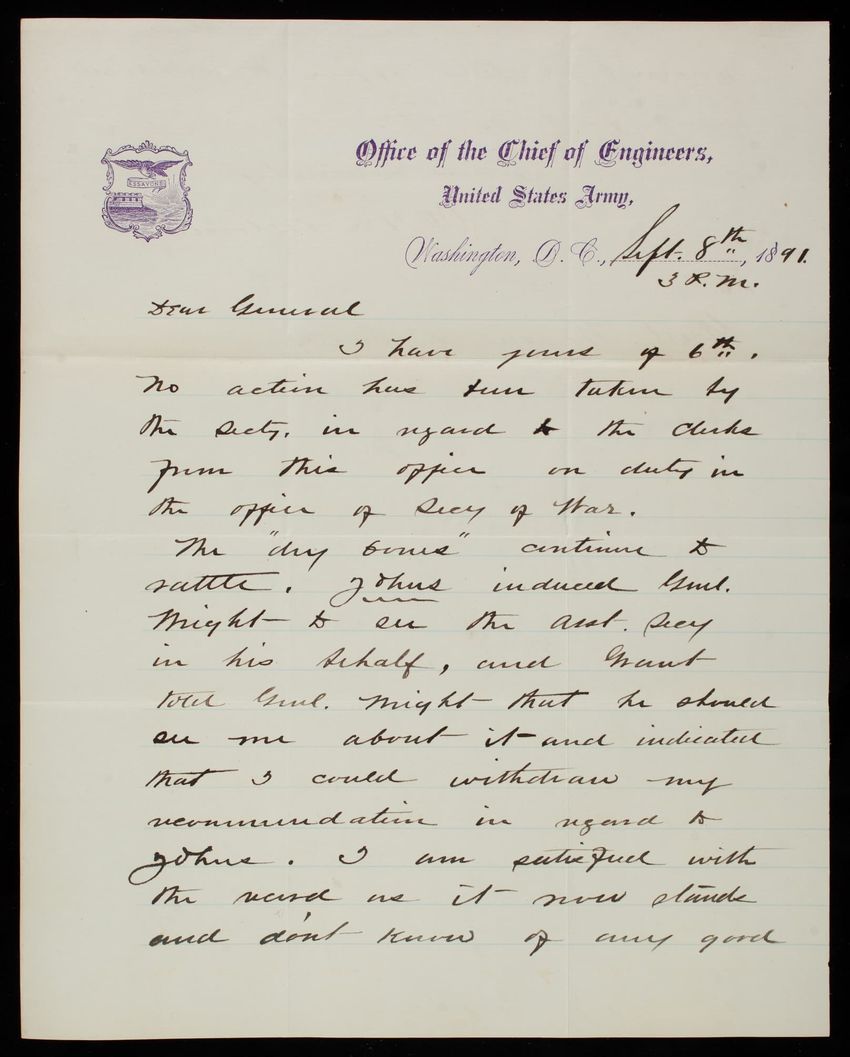 ESSAYONS
Office of the Chief of Engineers,
United States Army,
Washington, D. C., Sept. 8th, 1891.
3 P.M.
Dear General
I have yours of 6th.
No action has been taken by
the Secty. in regard to the clerks
from this office on duty in
the office of Secy of War.
The "dry bones" continue to
rattle. Johns induced Genl.
Wright to see the Asst. Secy
in his behalf, and Grant
told Genl. Wright that he should
see me about it and indicated
that I could withdraw my
recommendation in regard to
Johns. I am satisfied with
the record as it now stands
and don't know of any good